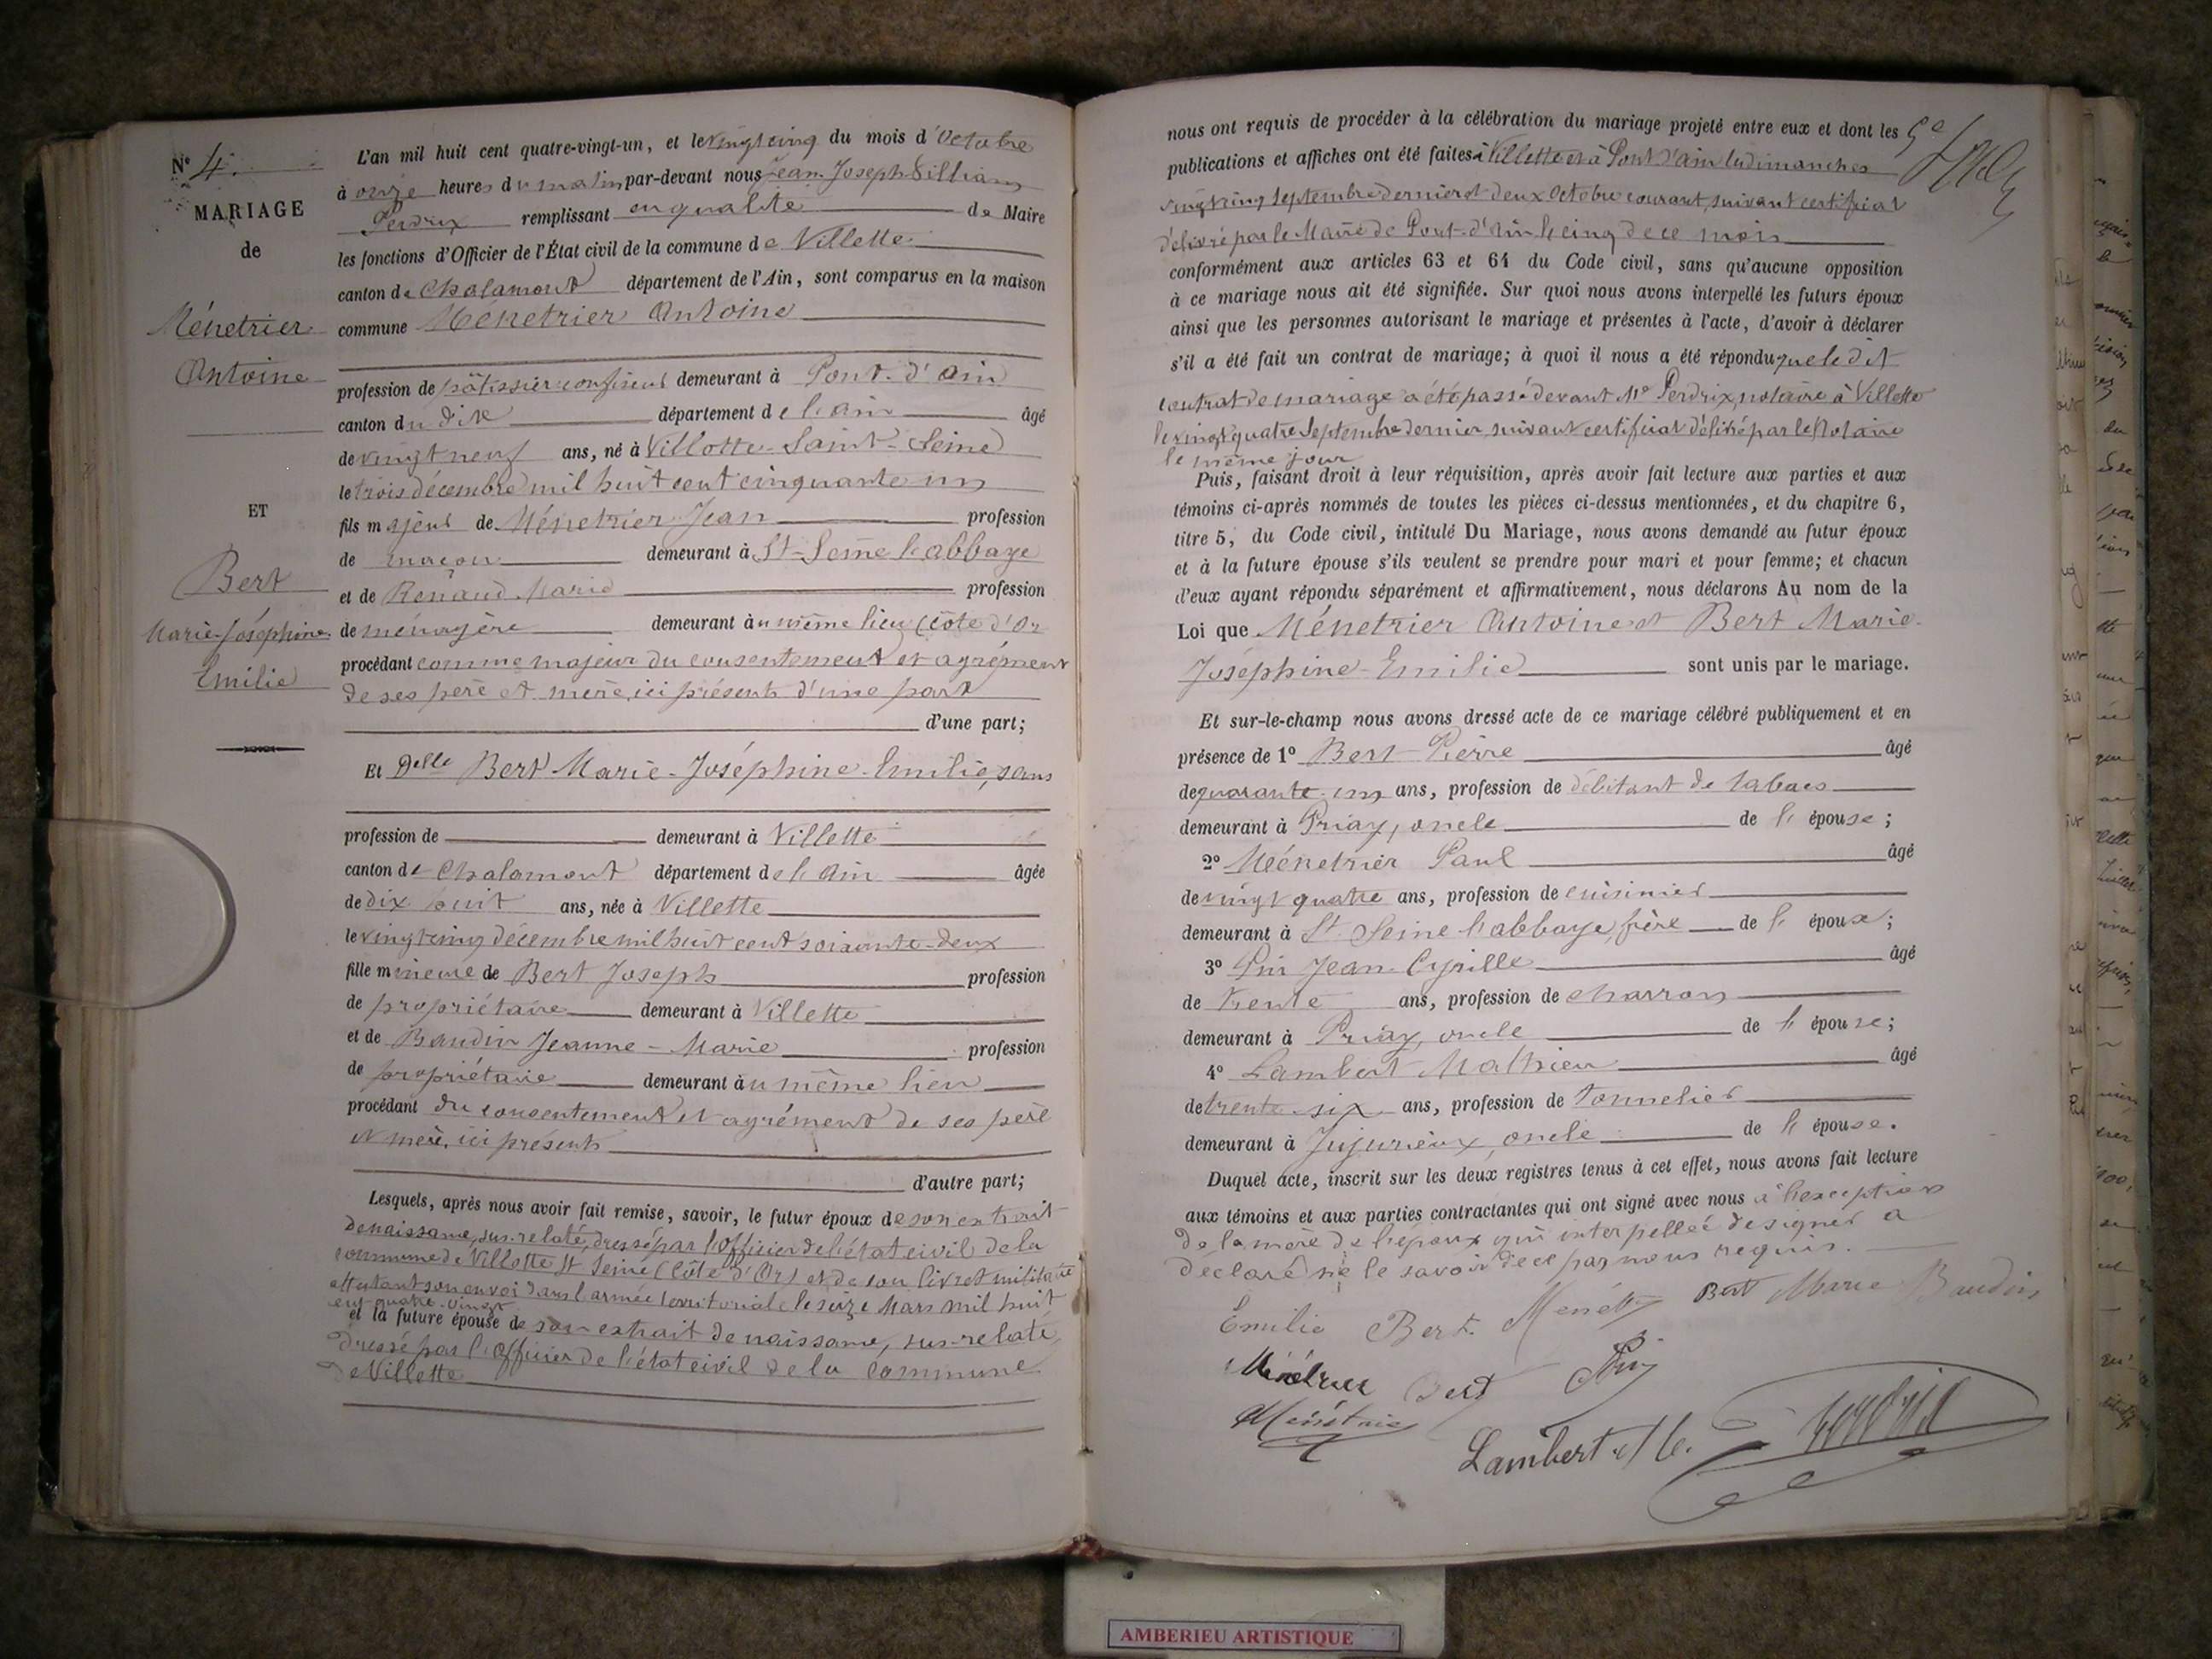 Nº 4.
MARIAGE
de
Ménetrier
Antoine
ET
Bert
Marie-Joséphine
Emilie
L'an mil huit cent quatre-vingt-un, et le vingt cinq du mois d'Octobre
à onze heures du matin par-devant nous Jean Joseph
Perdrix remplissant en qualité de Maire
les fonctions d'Officier de l'État civil de la commune de Villette
canton de Chalamont département de l'Ain, sont comparus en la maison
commune Ménetrier Antoine
profession de pâtissier confiseur demeurant à Pont-d'ain
canton du dit département de l'ain âgé
de vingt neuf ans, né à Villotte-Saint-Seine
le trois décembre mil huit cent cinquante un
fils majeur de Ménetrier Jean profession
de maçon demeurant à St-Seine l'abbaye
et de Renaud Marie profession
de ménagère demeurant au même lieu (Côte d'Or
procédant comme majeur du consentement et agrément
de ses père et mère, ici présents d'une part
d'une part;
Et Delle Bert Marie-Joséphine-Emilie, sans
profession de demeurant à Villette
canton de Chalamont département de l'ain âgée
de dix huit ans, née à Villette
le vingt cinq décembre mil huit cent soixante-deux
fille mineure de Bert Joseph profession
de propriétaire demeurant à Villette
et de Baudin Jeanne-Marie profession
de propriétaire demeurant au même lieu
procédant du consentement et agrément de ses père
et mère, ici présents
d'autre part;
Lesquels, après nous avoir fait remise, savoir, le futur époux de son extrait
de naissance, sus-relaté, dressé par l'officier de l'état civil de la
commune de Villotte St Seine (Côte d'Or) et de son livret militaire
attestant son envoi dans l'armée territoriale le seize Mars mil huit
cent quatre-vingt
et la future épouse de son extrait de naissance, sus-relaté,
dressé par l'officier de l'état civil de la commune
de Villette
nous ont requis de procéder à la célébration du mariage projeté entre eux et dont les
publications et affiches ont été faites à Villette et à Pont d'ain les dimanches
vingt cinq septembre dernier et deux Octobre courant, suivant certificat
délivré par le Maire de Pont-d'Ain le cinq de ce mois
conformément aux articles 63 et 64 du Code civil, sans qu'aucune opposition
à ce mariage nous ait été signifiée. Sur quoi nous avons interpellé les futurs époux
ainsi que les personnes autorisant le mariage et présentes à l'acte, d'avoir à déclarer
s'il a été fait un contrat de mariage; à quoi il nous a été répondu que le dit
contrat de mariage a été passé devant Me Perdrix, notaire à Villette
le vingt quatre Septembre dernier, suivant certificat délivré par le Notaire
le même jour
Puis, faisant droit à leur réquisition, après avoir fait lecture aux parties et aux
témoins ci-après nommés de toutes les pièces ci-dessus mentionnées, et du chapitre 6,
titre 5, du Code civil, intitulé Du Mariage, nous avons demandé au futur époux
et à la future épouse s'ils veulent se prendre pour mari et pour femme; et chacun
d'eux ayant répondu séparément et affirmativement, nous déclarons Au nom de la
Loi que Ménetrier Antoine et Bert Marie-
Joséphine-Emilie sont unis par le mariage.
Et sur-le-champ nous avons dressé acte de ce mariage célébré publiquement et en
présence de 1º Bert Pierre âgé
de quarante-un ans, profession de débitant de tabacs
demeurant à Priay, oncle de l'épouse;
2º Ménetrier Paul âgé
de vingt quatre ans, profession de cuisinier
demeurant à St Seine l'abbaye, frère de l'époux;
3º Pin Jean-Cyrille âgé
de trente ans, profession de charron
demeurant à Priay, oncle de l'épouse;
4º Lambert Mathieu âgé
de trente-six ans, profession de tonnelier
demeurant à Jujurieux, oncle de l'épouse.
Duquel acte, inscrit sur les deux registres tenus à cet effet, nous avons fait lecture
aux témoins et aux parties contractantes qui ont signé avec nous à l'exception
de la mère de l'époux qui interpellée de signer a
déclaré ne le savoir de ce par nous requis.
Emilie Bert. Menét Bert Marie Baudin
Ménétrier Bert Pin
Ménétrier
Lambert M. Perdrix
AMBERIEU ARTISTIQUE